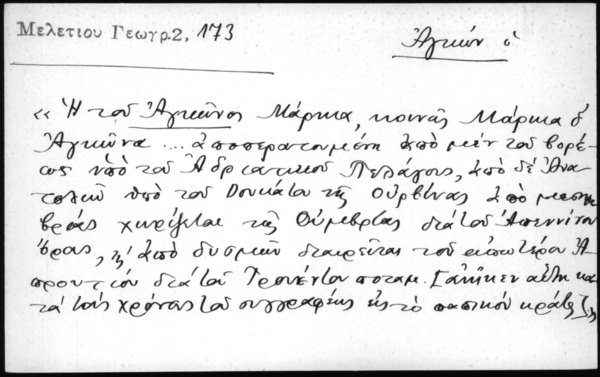 Μελετίου Γεωγρ. 2, 173
Ἀγκών ὁ
« Ἡ τοῦ Ἀγκῶνος Μάρκα, κοινῶς Μάρκα δ'
Ἀγκῶνα ... ἀποπερατουμένη ἀπὸ μὲν τοῦ βορέ-
ως ὑπὸ τοῦ Ἀδριατικοῦ Πελάγους, ἀπὸ δὲ Ἀνα-
τολῶν ὑπὸ τοῦ Δουκάτου τῆς Οὐρβίνας ἀπὸ μεσημ-
βρίας χωρίζεται τῆς Οὐμβρίας διὰ τοῦ Ἀπεννίνου
ὄρους, κ' ἀπὸ δυσμῶν διαιρεῖται τοῦ ἀπωτέρου Ἀ-
προυτίου διὰ τοῦ Τρουέντου ποταμ. [ἀνῆκεν αὕτη κα-
τὰ τοὺς χρόνους τοῦ συγγραφέως εἰς τὸ παπικὸν κράτος